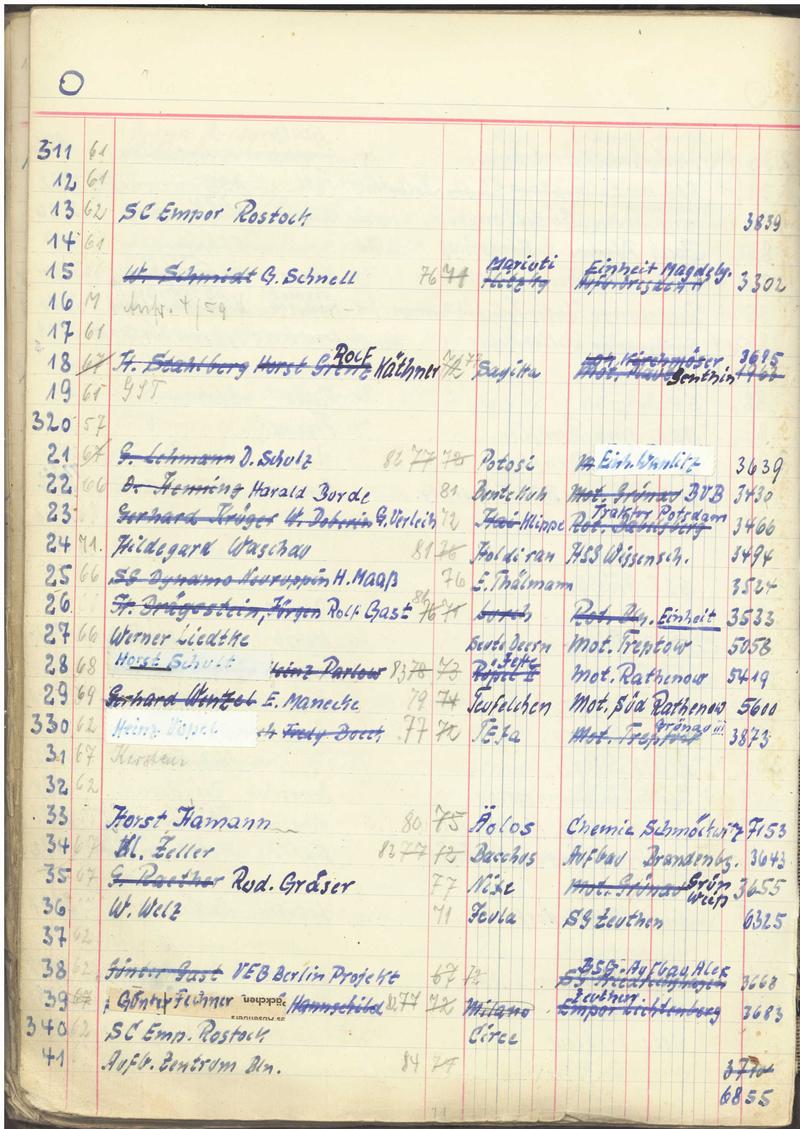 O
311 61
12 61
13 62 SC Empor Rostock 3839
14 61
15 W. Schmidt G. Schnell 76 71 Marioti Einheit Magdebg. 3302
16
17 61
18 67 H. Stahlberg Horst Grenz Rolf Käthner 72 Sagitta Kirchmöser Genthin 3695
19 61 GST
320 57
21 67 G. Lehmann D. Schulz 82 77 72 Potosi Einh. Wanlitz 3639
22 66 O. Henning Harald Borde 81 Mot. Grünau BVB 3430
23 Gerhard Krüger W. Doberin G. Verleih 72 Hai Klippe Traktor Potsdam Rot. Babelsberg 3466
24 71. Hildegard Waschau 81 76 Holdiran HSG Wissensch. 3494
25 66 SG Dynamo Neuruppin H. Maaß 76 E. Thälmann 3524
26 H. Brägostein, Jürgen Rolf Gast 81 76 71 Einheit 3533
27 66 Werner Liedtke Beute Deern Mot. Treptow 5058
28 68 Horst Schult Heinz Parlow 83 78 73 Mot. Rathenow 5419
29 69 Gerhard Wentzel E. Manecke 79 74 Teufelchen Mot. Süd Rathenow 5600
330 62 Heinz Vogel Fredy Boeck 77 72 TEfa Mot. Treptow Grünau III 3873
31 67 Kersten
32 62
33 Horst Hamann 80 75 Äolos Chemie Schmöckwitz 7153
34 67 Kl. Zeller 83 77 72 Bacchus Aufbau Brandenbg. 3643
35 67 G. Raether Rud. Gräser 77 Nixe Mot. Grünau Grün Weiß 3655
36 W. Welz 71 Jeula SG Zeuthen 6325
37 62
38 62 Günter Gast VEB Berlin Projekt 67 72 BSG. Aufbau Alex 3668
39 67 Günter Fechner Päckchen Hannschild 82 77 72 Milano Zeuthen Empor Lichtenberg 3683
340 62 SC Emp. Rostock Circe
41 Aufb. Zentrum Bln. 84 74
6855